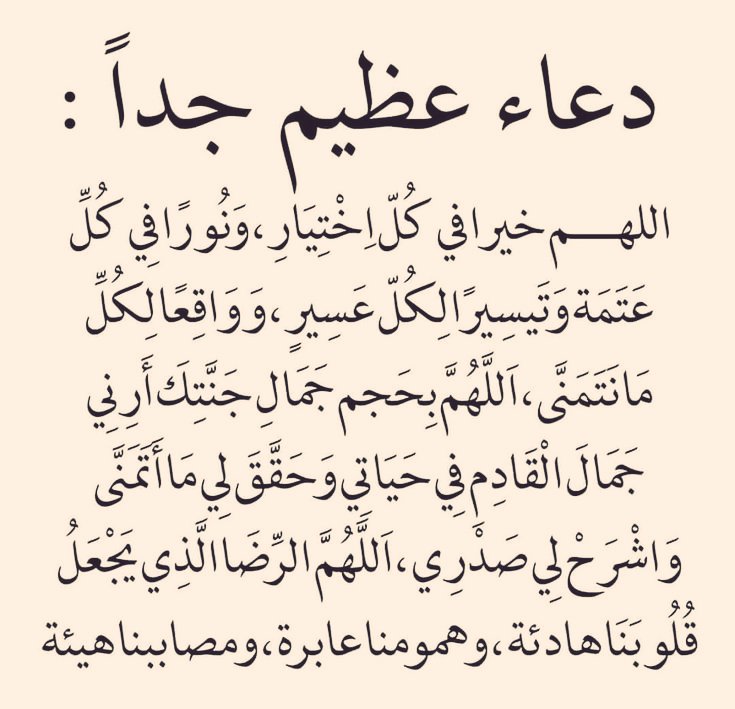 دعاء عظيم جداً :
اللهـــم خيرا في كُلّ اِخْتِيَارِ، وَنُورًا فِي كُلِّ
عَتَمَة وَتَيسِيرًا لِكُلّ عَسِيرٍ، وَوَاقِعًا لِكُلِّ
مَا نَتَمَنَّى، اَللَّهُمَّ بِحَجم جَمَالِ جَنَّتِكَ أَرِنِي
جَمَالَ الْقَادِم فِي حَيَاتي وَحَقَّقَ لِي مَا أَتَمَنَّى
وَاشْرَحْ لِي صَدْرِي، اَللَّهُمَّ الرِّضَا الَّذِي يَجْعَلُ
قُلُوبَنَا هادئة، وهمومنا عابرة، ومصاببنا هيئة